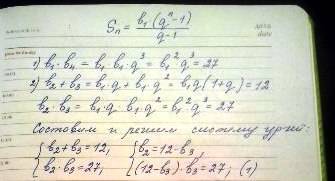 Sₙ = b₁(qⁿ-1)/(q-1)
date
1) b₁·b₄ = b₁·b₁·q³ = b₁²·q³ = 27
2) b₂+b₃ = b₁·q+b₁·q² = b₁q(1+q) = 12
b₂·b₃ = b₁·q·b₁·q² = b₁²q³ = 27
Составим и решим систему ур-ний:
{b₂+b₃=12, {b₂=12-b₃,
{b₂·b₃=27, {(12-b₃)·b₃=27, (1)